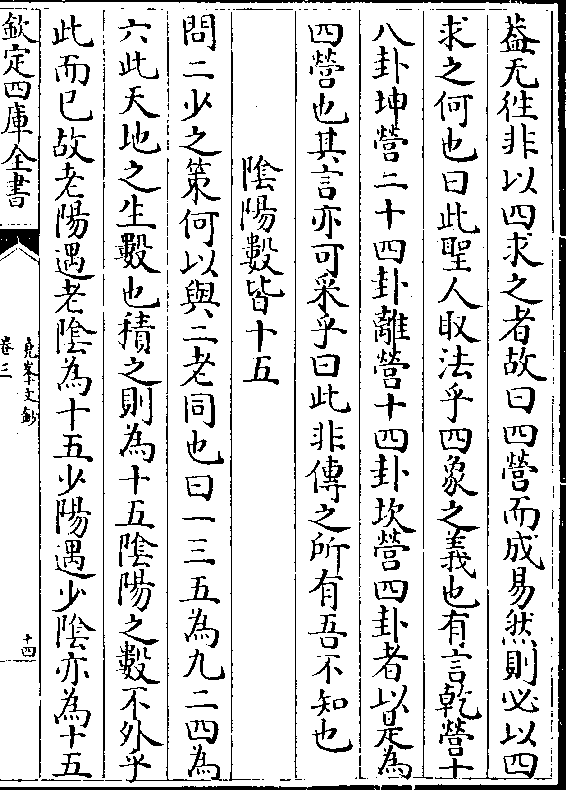 葢无徃非以四求之者故曰四營而成易然則必以四
求之何也曰此聖人取法乎四象之義也有言乾營十
八卦坤營二十四卦離營十四卦坎營四卦者以是為
四營也其言亦可采乎曰此非傳之所有吾不知也
陰陽數皆十五
問二少之策何以與二老同也曰一三五為九二四為
六此天地之生數也積之則為十五陰陽之數不外乎
此而已故老陽遇老陰為十五少陽遇少陰亦為十五
欽定四庫全書
堯峯文鈔
卷三
十四